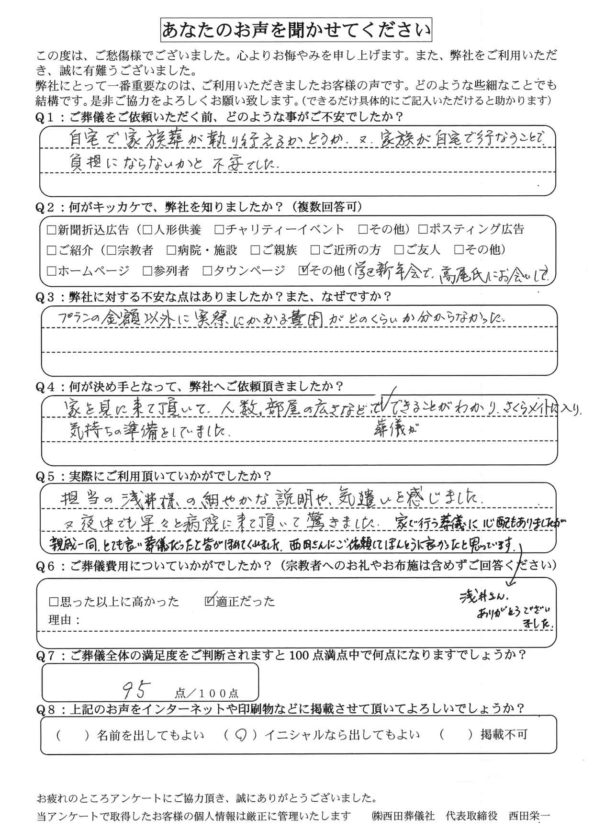 あなたのお声を聞かせてください
この度は、ご愁傷様でございました。心よりお悔やみを申し上げます。また、弊社をご利用いただ
き、誠に有難うございました。
弊社にとって一番重要なのは、ご利用いただきましたお客様の声です。どのような些細なことでも
結構です。是非ご協力をよろしくお願い致します。（できるだけ具体的にご記入いただけると助かります）
Q1：ご葬儀をご依頼いただく前、どのような事がご不安でしたか？
自宅で家族葬が執り行えるかどうか、又、家族が自宅で行なうことで
負担にならないかと不安でした。
Q2：何がキッカケで、弊社を知りましたか？（複数回答可）
□新聞折込広告（□人形供養　□チャリティーイベント　□その他）□ポスティング広告
□ご紹介（□宗教者　□病院・施設　□ご親族　□ご近所の方　□ご友人　□その他）
□ホームページ　□参列者　□タウンページ　☑その他（新年会で、高尾氏にお会いして
Q3：弊社に対する不安な点はありましたか？また、なぜですか？
プランの金額以外に実際にかかる費用がどのくらいか分からなかった。
Q4：何が決め手となって、弊社へご依頼頂きましたか？
家を見に来て頂いて、人数、部屋の広さなどで✓できることがわかり、さくらメイトに入り、
気持ちの準備をしていました。　葬儀が
Q5：実際にご利用頂いていかがでしたか？
担当の浅井様の細やかな説明や、気遣いを感じました。
又夜中でも早々と病院に来て頂いて驚きました。家で行う葬儀に心配もありましたが
親戚一同、とても良い葬儀だったと皆がほめてくれました。西田さんにご依頼してほんとうに良かったと思っています。
Q6：ご葬儀費用についていかがでしたか？（宗教者へのお礼やお布施は含めずご回答ください）
□思った以上に高かった　☑適正だった
理由：
浅井さん、
ありがとうござい
ました。
Q7：ご葬儀全体の満足度をご判断されますと100点満点中で何点になりますでしょうか？
95　点／100点
Q8：上記のお声をインターネットや印刷物などに掲載させて頂いてよろしいでしょうか？
（　）名前を出してもよい　（○）イニシャルなら出してもよい　（　）掲載不可
お疲れのところアンケートにご協力頂き、誠にありがとうございます。
当アンケートで取得したお客様の個人情報は厳正に管理いたします　㈱西田葬儀社　代表取締役　西田栄一